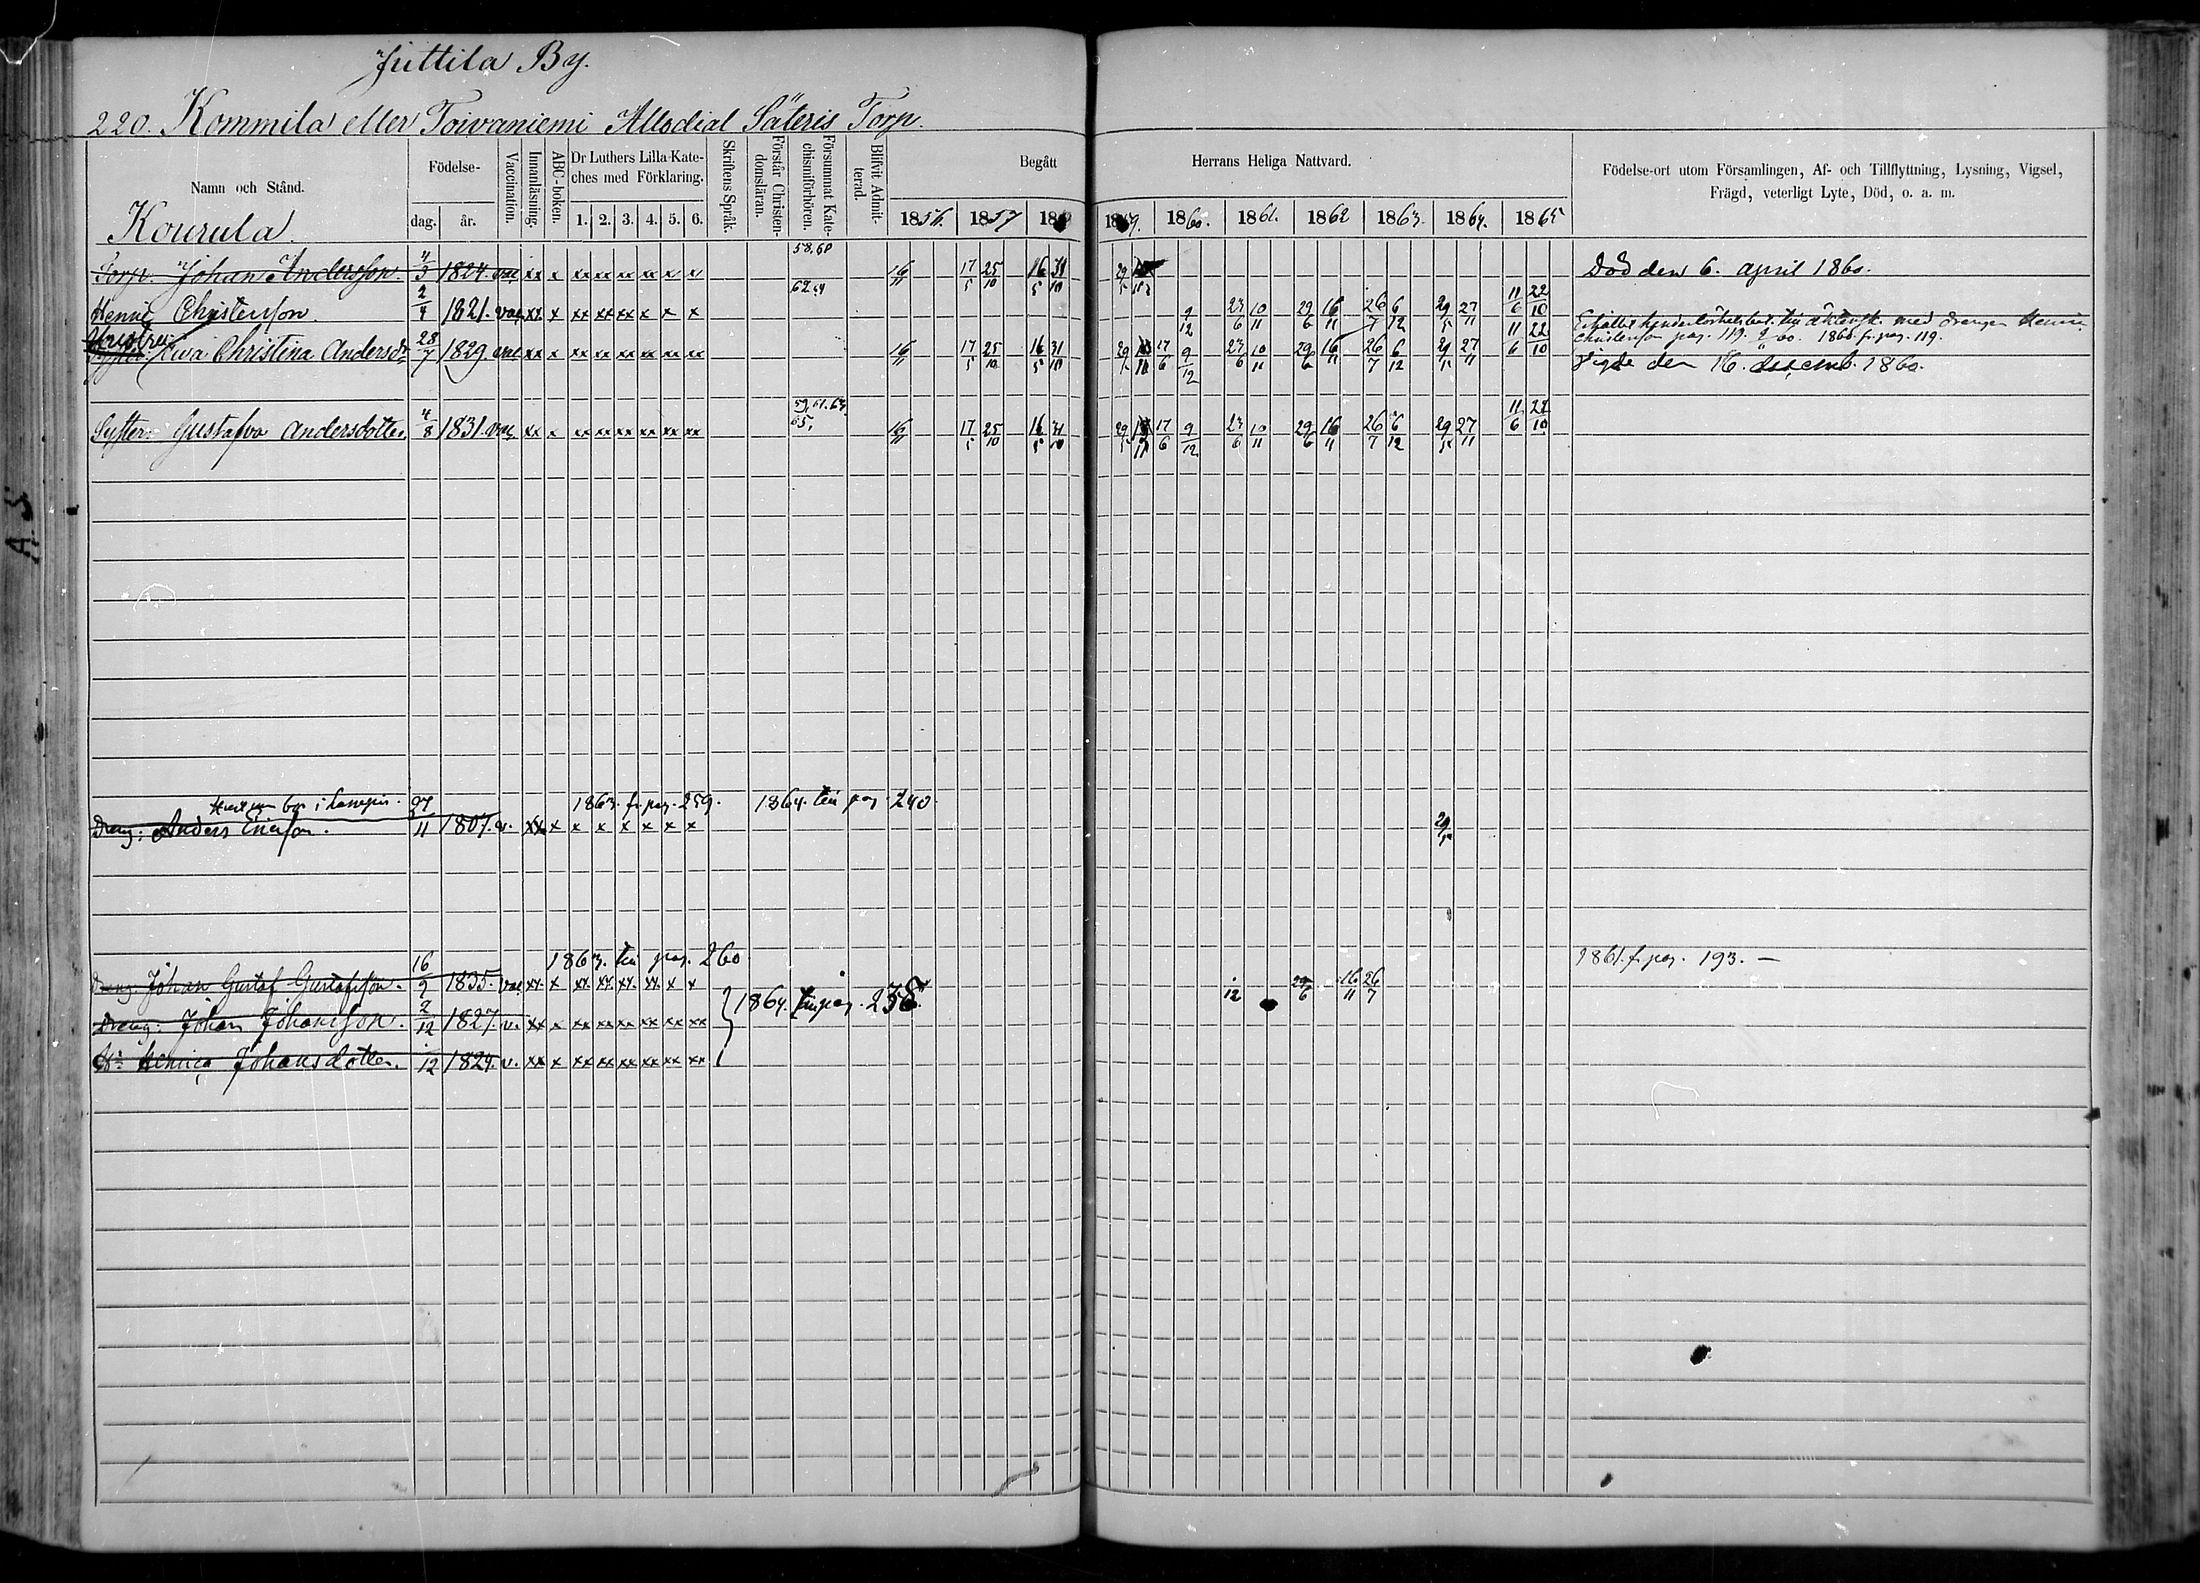 Juttila By.
220. Kommila eller Toivaniemi Allodial Säteris Torp.
Namn och Stånd.
Födelse-
dag. år.
Vaccination.
Innanläsning.
ABC-boken.
Dr Luthers Lilla Kate-
ches med Förklaring.
1. 2. 3. 4. 5. 6.
Skriftens Språk.
Förstår Christen-
domsläran.
Försummat Kate-
chismiförhören.
Blifvit Admit-
terad.
Begått Herrans Heliga Nattvard.
1856. 1857 18 1859. 1860. 1861. 1862 1863. 1864. 1865
Födelse-ort utom Församlingen, Af- och Tillflyttning, Lysning, Vigsel,
Frägd, veterligt Lyte, Död, o. a. m.
Kourula.
Torp. Johan Andersson. 4/3 1824. vac. xx x x xx xx xx x x 58.60 16/11 17/5 25/10 16/5 31/10 29/5 Död den 6. april 1860.
Henric Christersson. 2/4 1821. vac. xx x xx xx xx x x x 62.64 9/12 23/6 10/11 29/6 16/11 26/7 6/12 29/5 27/11 11/6 22/10
med drengen Henric
Christersson pag. 119. 1860 fr. pag. 119.
Hustru Ewa Christina Andersdr 28/7 1829 vac xx x xx xx xx xx xx xx 16/11 17/5 25/10 16/5 31/10 29/5 17/6 9/12 23/6 10/11 29/6 16/11 26/7 6/12 29/5 27/11 11/6 22/10 Vigde den 16. decemb. 1860.
Syster: Gustafva Andersdotter 4/8 1831. vac, xx x xx xx xx xx xx xx 59. 61. 63. 65, 16/11 17/5 25/10 16/5 31/10 29/5 17/6 9/12 23/6 10/11 29/6 16/11 26/7 6/12 29/5 27/11 11/6 22/10
1863. fr. pag. 259. 1864. till pag. 240.
Dreng: Anders Ericsson. 27/11 1807. v. xx x x x x x x x 29/5
1863. till pag. 260 1861. fr. pag. 193. —
Dreng. Johan Gustaf Gustafsson. 16/9 1835. vac xx x xx xx xx xx x x 12 29/6 16/11 26/7
Dreng: Johan Johansson. 2/12 1827. v. xx x xx xx xx xx xx xx 1864. till pag. 238.
Hu Henrica Johansdotter. 12 1824. v. xx x xx xx xx xx xx xx
A. 5.